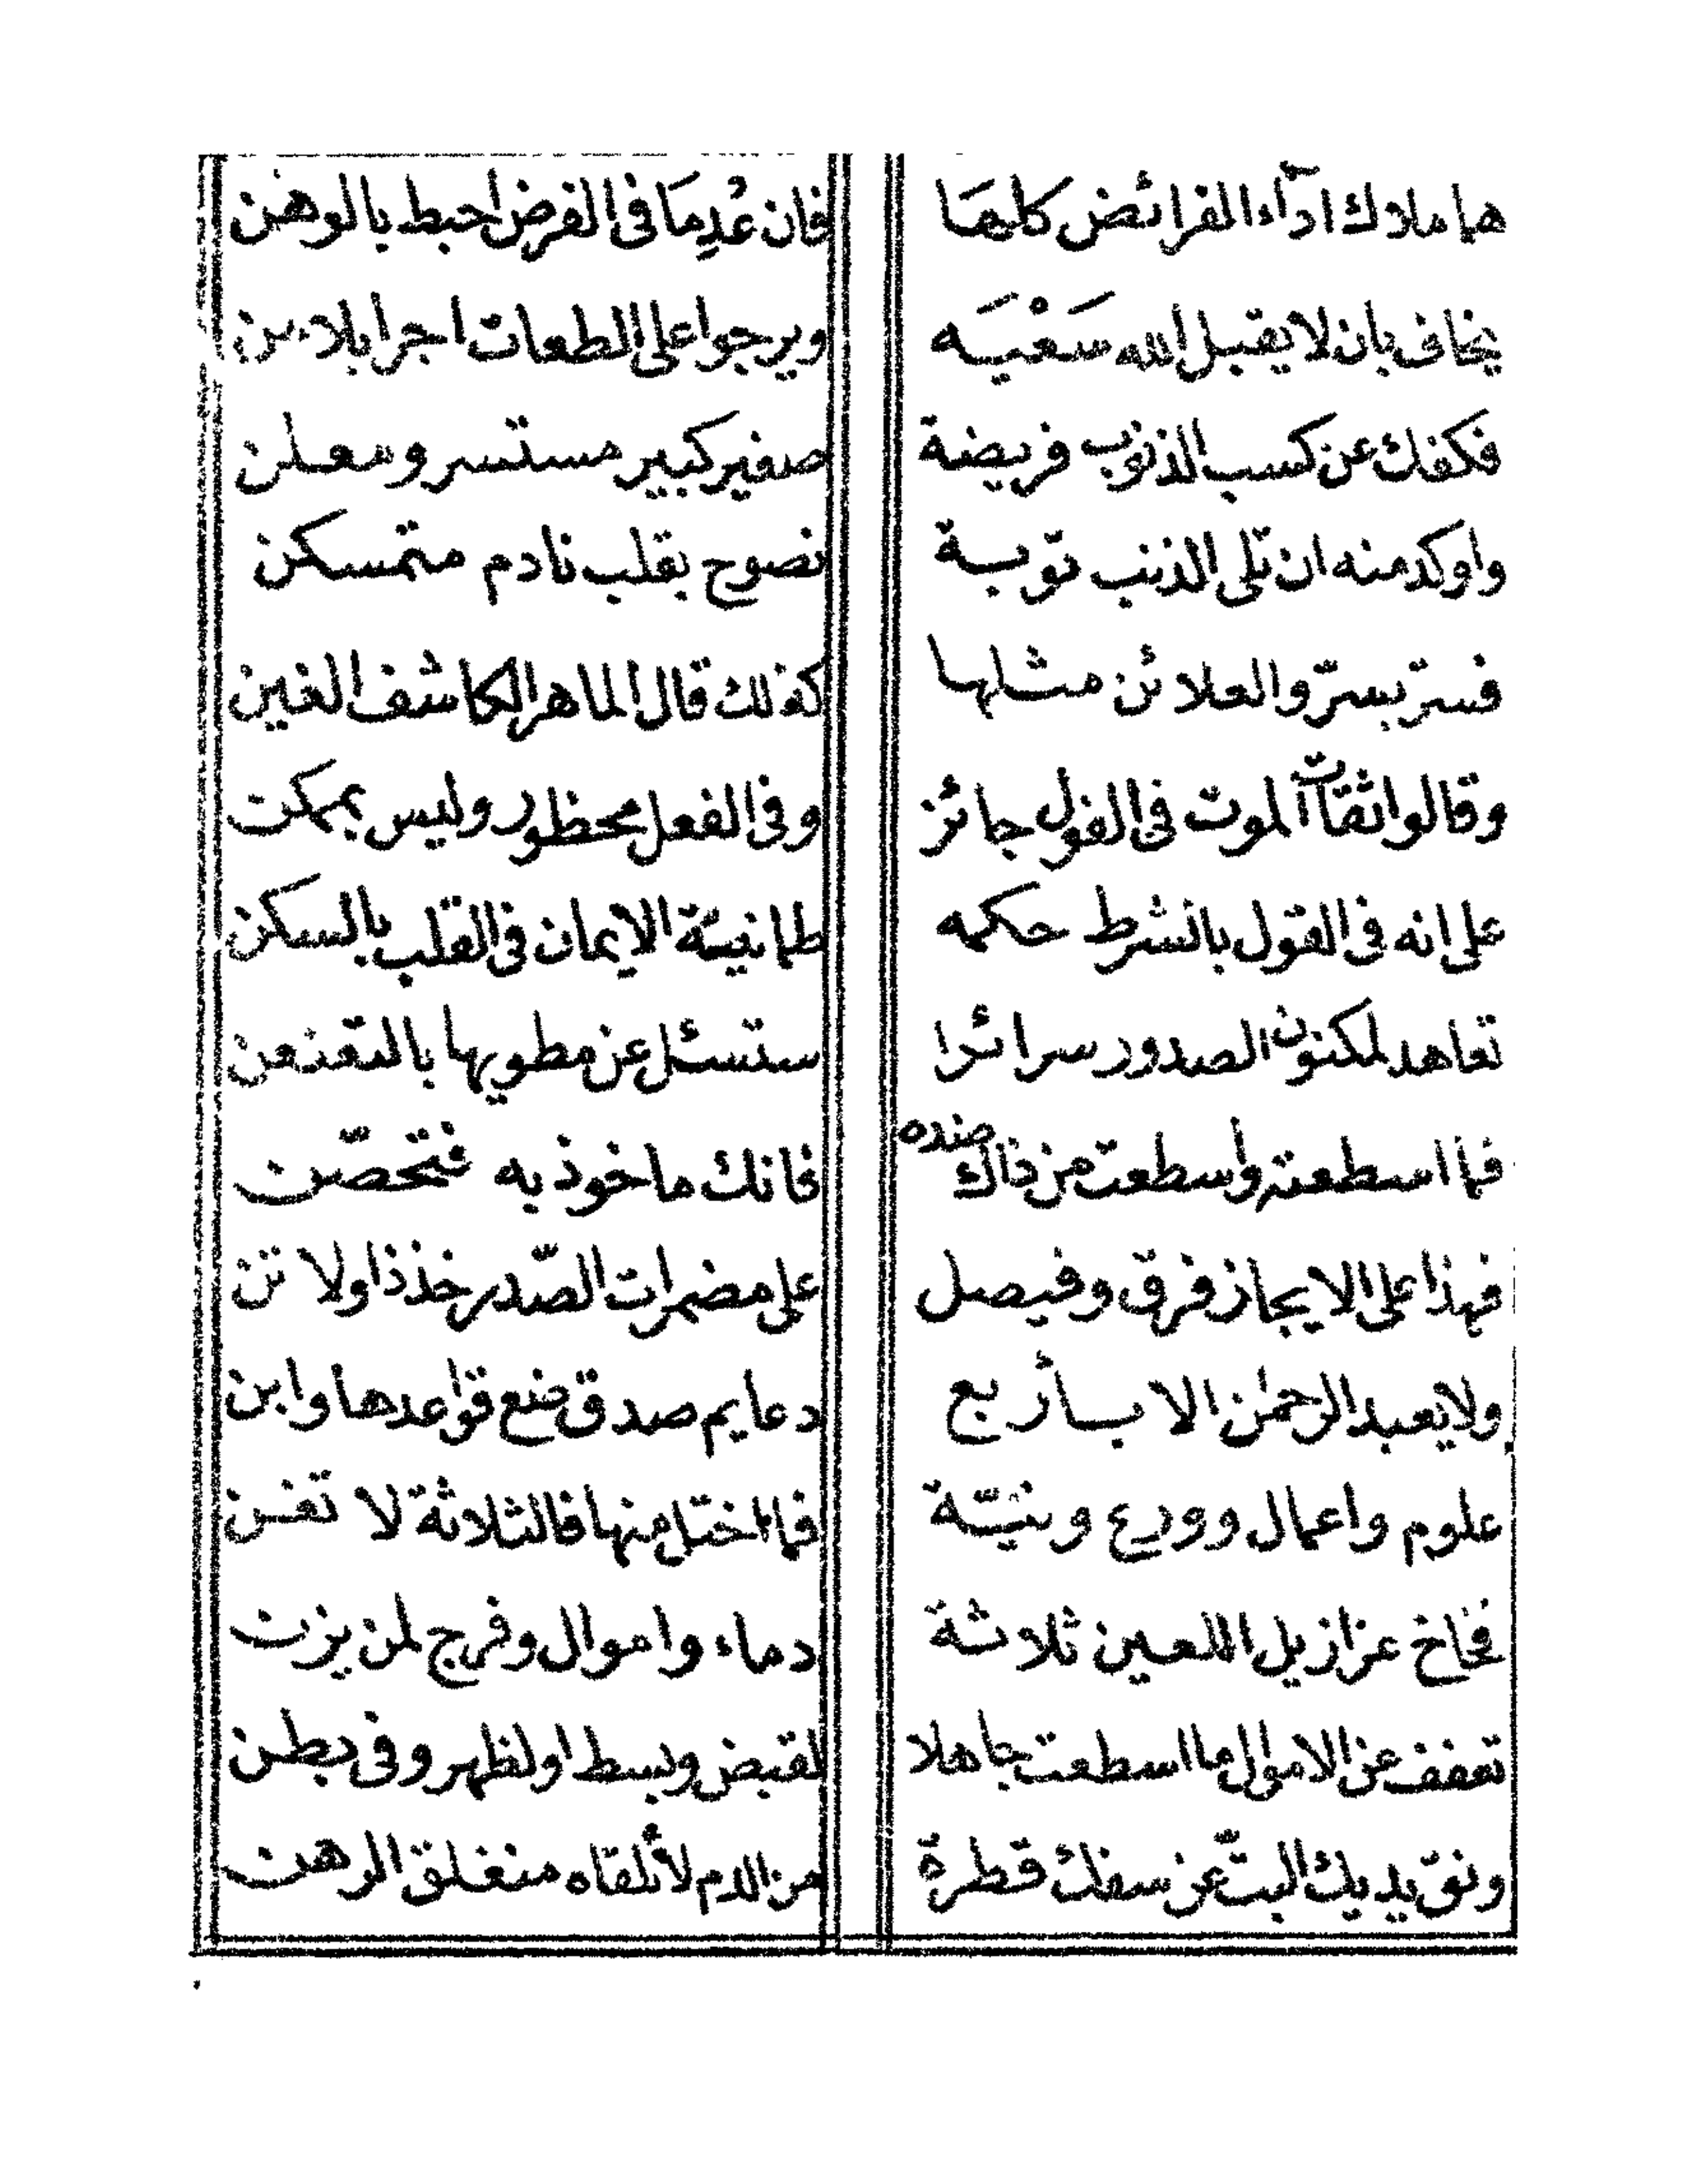 هما ملاك اداء الفرائض كلها فان عُدِمَا فى الفرض احبط بالوهن
يخاف بان لا يقبل الله سَعْيَه ويرجوا على الطعات اجرا بلا من
فكفك عن كسب الذنوب فريضة صغير كبير مستسر ومعلن
واوكد منه ان تلى الذنب توبة نصوح بقلب نادم متمسكن
فسرّ بسرّ والعلائن مثلها كذلك قال الماهر الكاشف الغين
وقالوا ثقات الموت فى القول جائز وفى الفعل محظور وليس بممكن
على انه فى القول بالشرط حكمه طمانينة الايمان فى القلب بالسكن
تعاهد لمكنون الصدور سرائرا ستسئل عن مطويها بالتعنعن
فما اسطعته واسطعت من ذاك ضده فانك ماخوذ به فتحصّن
فهذا على الايجاز فرق وفيصل على مضمرات الصّدر خذ ذا ولا تن
ولا يعبد الرحمٰن الا بأربع دعايم صدق ضع قواعدها وابن
علوم واعمال وورع ونيّة فما اختل منها فالثلاثة لا تغن
فخاخ عزازيل اللعين ثلاثة دماء واموال وفرج لمن يزن
تعفف عن الاموال ما اسطعت جاهلا لقبض وبسط او لظهر وفى بطن
ونق يديك البتّ عن سفك قطرة من الدم لا تلقاه منغلق الرهن